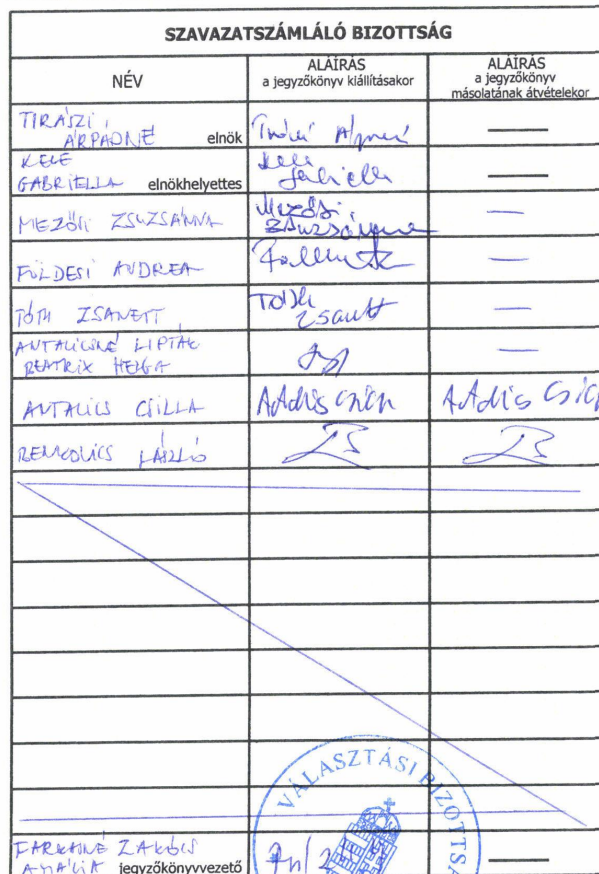 SZAVAZATSZÁMLÁLÓ BIZOTTSÁG
NÉV
ALÁÍRÁS
a jegyzőkönyv kiállításakor
ALÁÍRÁS
a jegyzőkönyv
másolatának átvételekor
TIRÁSZI
ÁRPÁDNÉ elnök
KELE
GABRIELLA elnökhelyettes
Kele
Gabriella
MEZŐSI ZSUZSÁNNA
Mezősi
Zsuzsánna
FÖLDESI ANDREA
TÓTH ZSANETT
Tóth
Zsanett
ANTALICSNÉ LIPTÁK
BEATRIX HELGA
ANTALICS CSILLA
Antalics Csilla
Antalics Csilla
BENKOVICS LÁSZLÓ
VÁLASZTÁSI BIZOTTSÁ
AMÁLIA jegyzőkönyvvezető